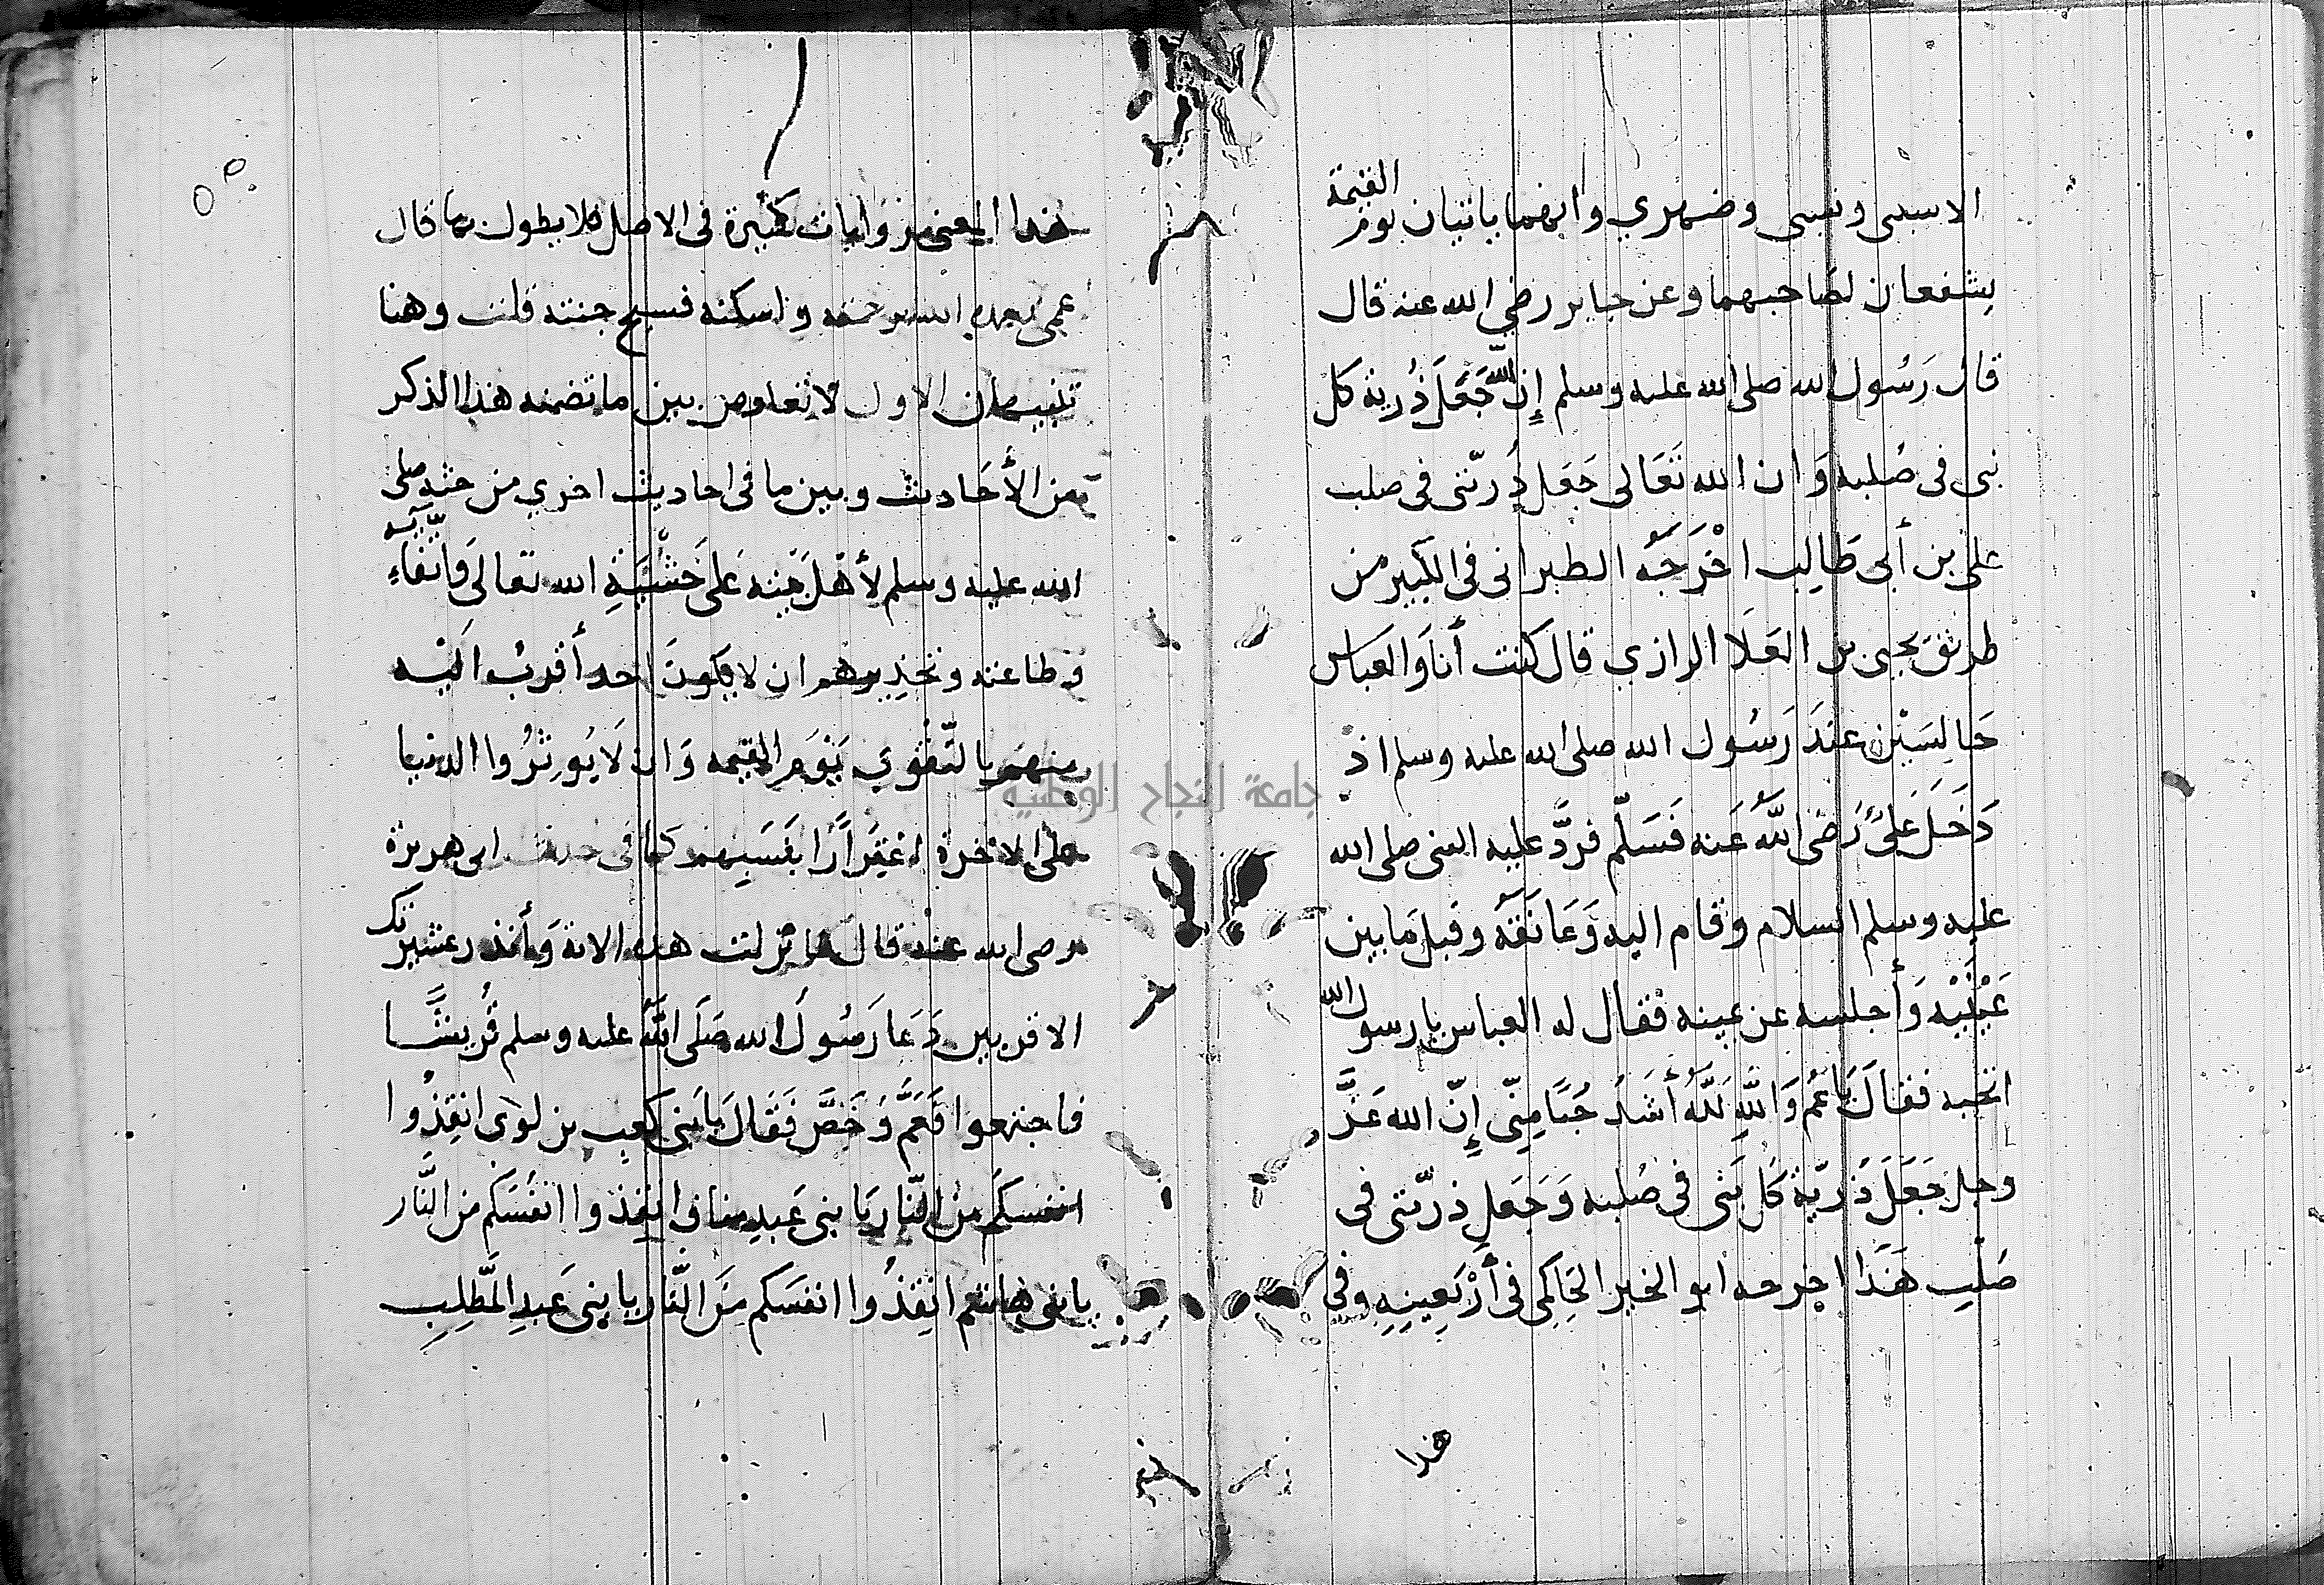 الا سببى ونسبى وصهري وانهما ياتيان يوم القيمة
يشفعان لصاحبهما وعن جابر رضي الله عنه قال
قال رَسُول الله صلى الله عليه وسلم إنّ الله جَعَلَ ذُرية كل
نبى فى صُلبه وَان الله تَعَالى جَعَل ذُرّيتى فى صلب
على بن أبى طَالِب اخْرَجَهُ الطبرانى فى الكبير من
طريق يحيى بن العَلَا الرازي قال كنت أنا وَالعباس
جَالِسَيْن عِندَ رَسُول الله صلى الله عليه وسلم اذ
دَخَلَ عَلىٌ رَضى اللهُ عَنه فَسَلّم فردَّ عليه النبى صلى الله
عليه وسلم السلام وقام اليه وَعَانَقَهُ وقبل مَا بين
عَيْنَيْه وَأجلسه عن يمينه فقال له العباس يا رسول الله
اتحبه فقالَ يَا عُم وَاللهِ للهُ أشَدُ حُبًا مِنّى إنّ الله عَزَّ
وجل جَعَلَ ذُريّة كُل نَبى فى صُلبه وَجَعَل ذرّيتى فى
صُلْبِ هَذَا اخرجه ابو الخير الحَاكِمى فى أرْبَعِينِهِ وفي
هذا
هذا المعنى روايات كثيرة فى الاصل فلا يطول بها قال
عمى تغمده الله برحمته واسكنه فسيح جنته قلت وهنا
تنبيهان الاول لا تعارض بين ما تضمنه هذا الذكر
من الأحَاديث وبين ما فى احاديث اخري من حثه صلى
الله عليه وسلم لأهْل بَيْته عَلى خَشْيَةِ الله تعالى وَاتّقَاءِه
وطاعته وتحذيرهم ان لا يكونَ احد أقرب اليْه
منهم بالتّقْوي يَوْمَ القيمه وَان لَا يُوثرُوا الدنيا
على الاخرة اغتِرَارًا بِنَسَبِهم كما فى حديث ابى هريرة
رضى الله عنْه قال لما نزلت هذه الاية وَأنذر عشيرتك
الاقربين دَعَا رَسُولُ الله صَلَى اللهُ عليه وسلم قُريشًا
فاجتمعوا فَعَمَّ وَخَصَّ فَقَالَ يا بَنى كعب بن لوى انقِذُوا
انفسكم مِن النّار يَا بنى عَبد مناف انقِذوا انفُسَكم من النّار
يا بنى هاشم انقِذُوا انفسَكم مِنَ النّار يا بنى عَبدِ المُطّلِبِ
جامعة النجاح الوطنية